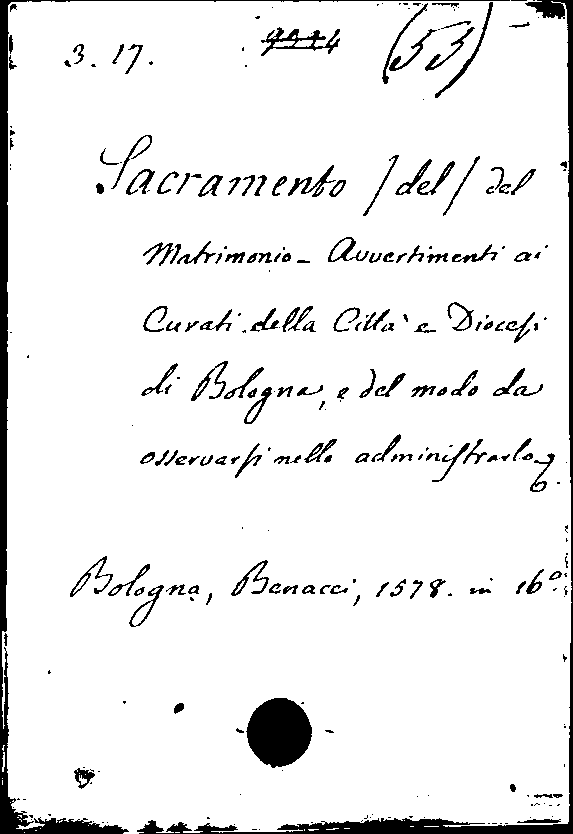 3. 17. (53)
Sacramento / del / del
Matrimonio - Avvertimenti ai
Curati della Città e Diocesi
di Bologna, e del modo da
osservarsi nello administrarlo
Bologna, Benacci, 1578. in 16º.